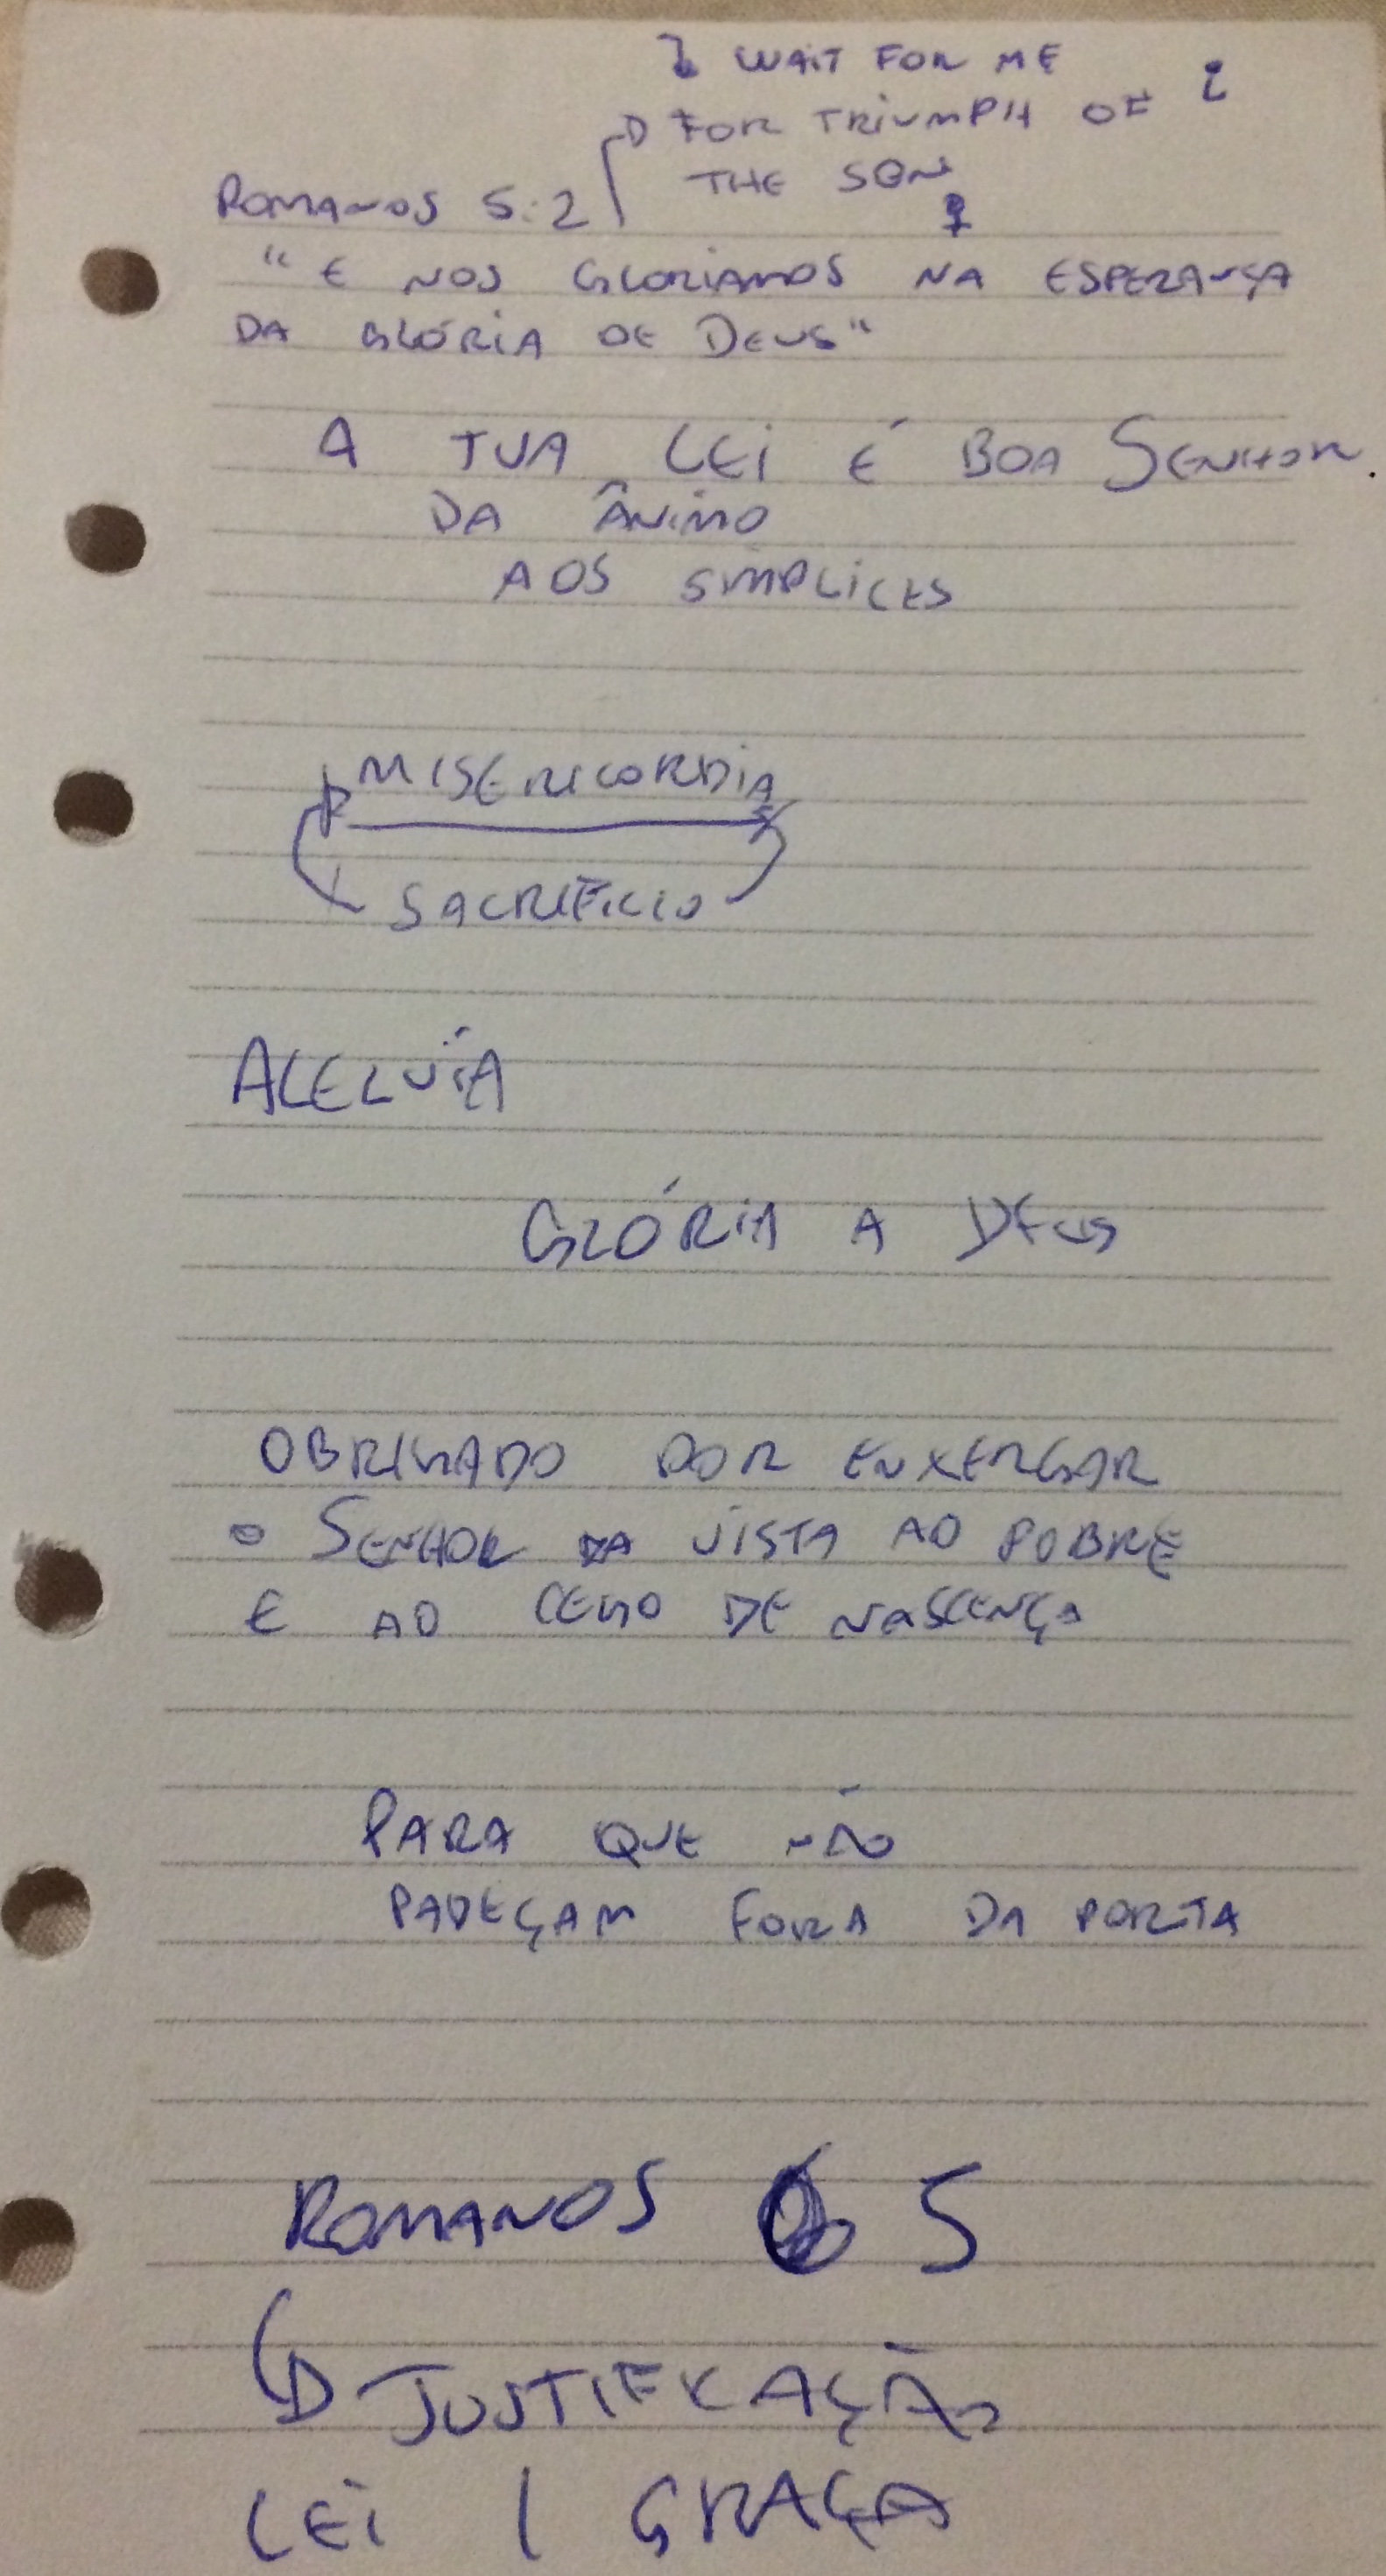 WAIT FOR ME
FOR TRIUMPH OF
THE SON
ROMANOS 5:2
"E NOS GLORIAMOS NA ESPERANÇA
DA GLÓRIA DE DEUS"
A TUA LEI É BOA SENHOR.
DA ÂNIMO
AOS SIMPLICES
MISERICORDIA
SACRIFICIO
ALELUÍA
GLÓRIA A DEUS
OBRIGADO POR ENXERGAR
O SENHOR DA VISTA AO POBRE
E AO CEGO DE NASCENÇA
PARA QUE NÃO
PADEÇAM FORA DA PORTA
ROMANOS 5
JUSTIFICAÇÃO
LEI | GRAÇA